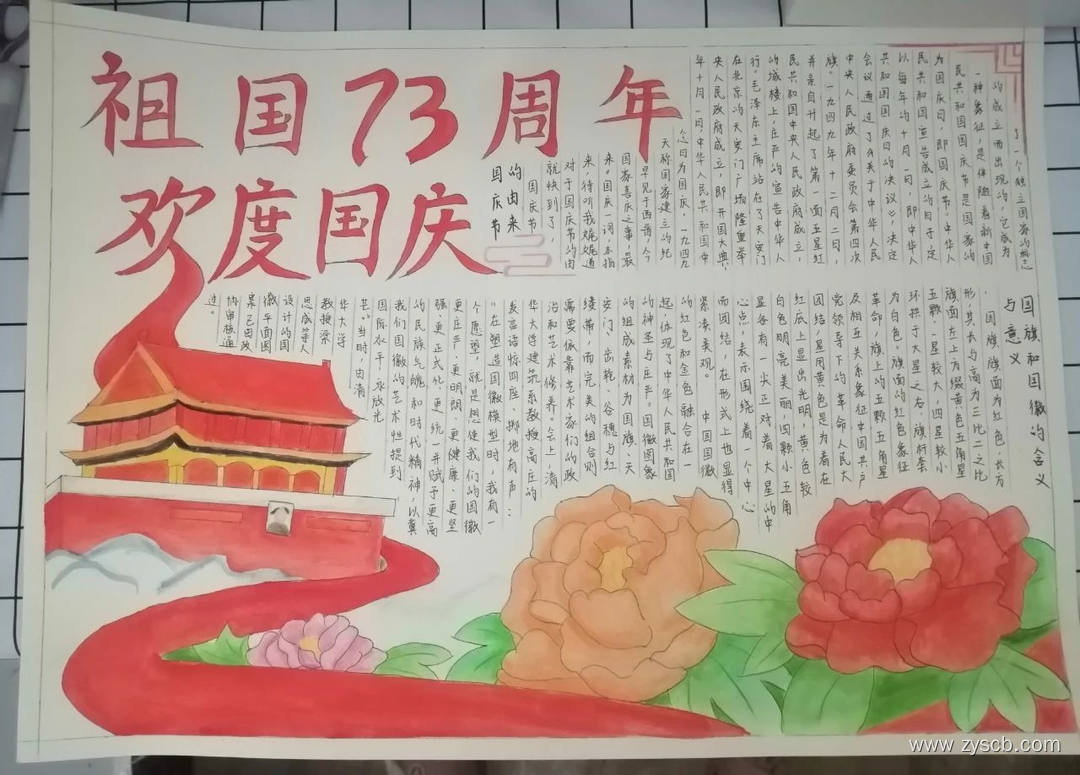 祖国73周年
欢度国庆
国庆节
的由来
国庆节
就快到了，
对于国庆节的由
来，待听我娓娓道
来。国庆一词，本指
国家喜庆之事，最
早见于西晋，今
天称国家建立的纪
念日为国庆。一九四九
年十月一日，中华人民共和国中
央人民政府成立，即开国大典，
在北京的天安门广场隆重举
行。毛泽东主席站在了天安门
的城楼上庄严的宣告中华人
民共和国中央人民政府成立，
并亲自升起了第一面五星红
旗。一九四九年十二月二日，
中央人民政府委员会第四次
会议通过了《关于中华人民
共和国国庆日的决议》，决定
以每年的十月一日，即中华人
民共和国宣告成立的日子定
为国庆日，即国庆节。中华人
民共和国国庆节是国家的
一种象征，是伴随着新中国
的成立而出现的。它成为
了一个独立国家的标志
国旗和国徽的含义
与意义
国旗旗面为红色，长方
形，其长与高为三比二之比
旗面左上方缀黄色五角星
五颗。一星较大，四星较小
环拱于大星之右。旗杆套
为白色。旗面的红色象征
革命，旗上的五颗五角星
及相互关系象征中国共产
党领导下的革命人民大
团结。星用黄色是为着在
红底上显出光明，黄色较
白色明亮美丽。四颗小五角
星各有一尖正对着大星的中
心点，表示围绕着一个中心
而团结，在形式上也显得
紧凑美观。中国国徽
的红色和金色融合在一
起，体现了中华人民共和国
的神圣与庄严。国徽图案
的组成素材为国旗、天
安门、齿轮、谷穗与红
绶带，而完美的组合则
需要依靠艺术家们的政
治和艺术修养。会上，清
华大学建筑系教授高庄的
发言语惊四座，掷地有声：
“在塑造国徽模型时，我有一
个愿望，就是想使我们的国徽
更庄严、更明朗、更健康、更坚
强、更正式化、更统一，并赋予更高
的民族气魄和时代精神，以冀
我们国徽的艺术性提到
国际水平，永放光
芒。”当时，由清
华大学
教授梁
思成等人
设计的国
徽平面图
案已由政
协审核通
过。
www.zyscb.com